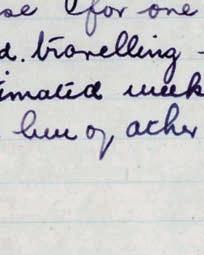 se (for one
d. travelling -
timated week
lieu of other